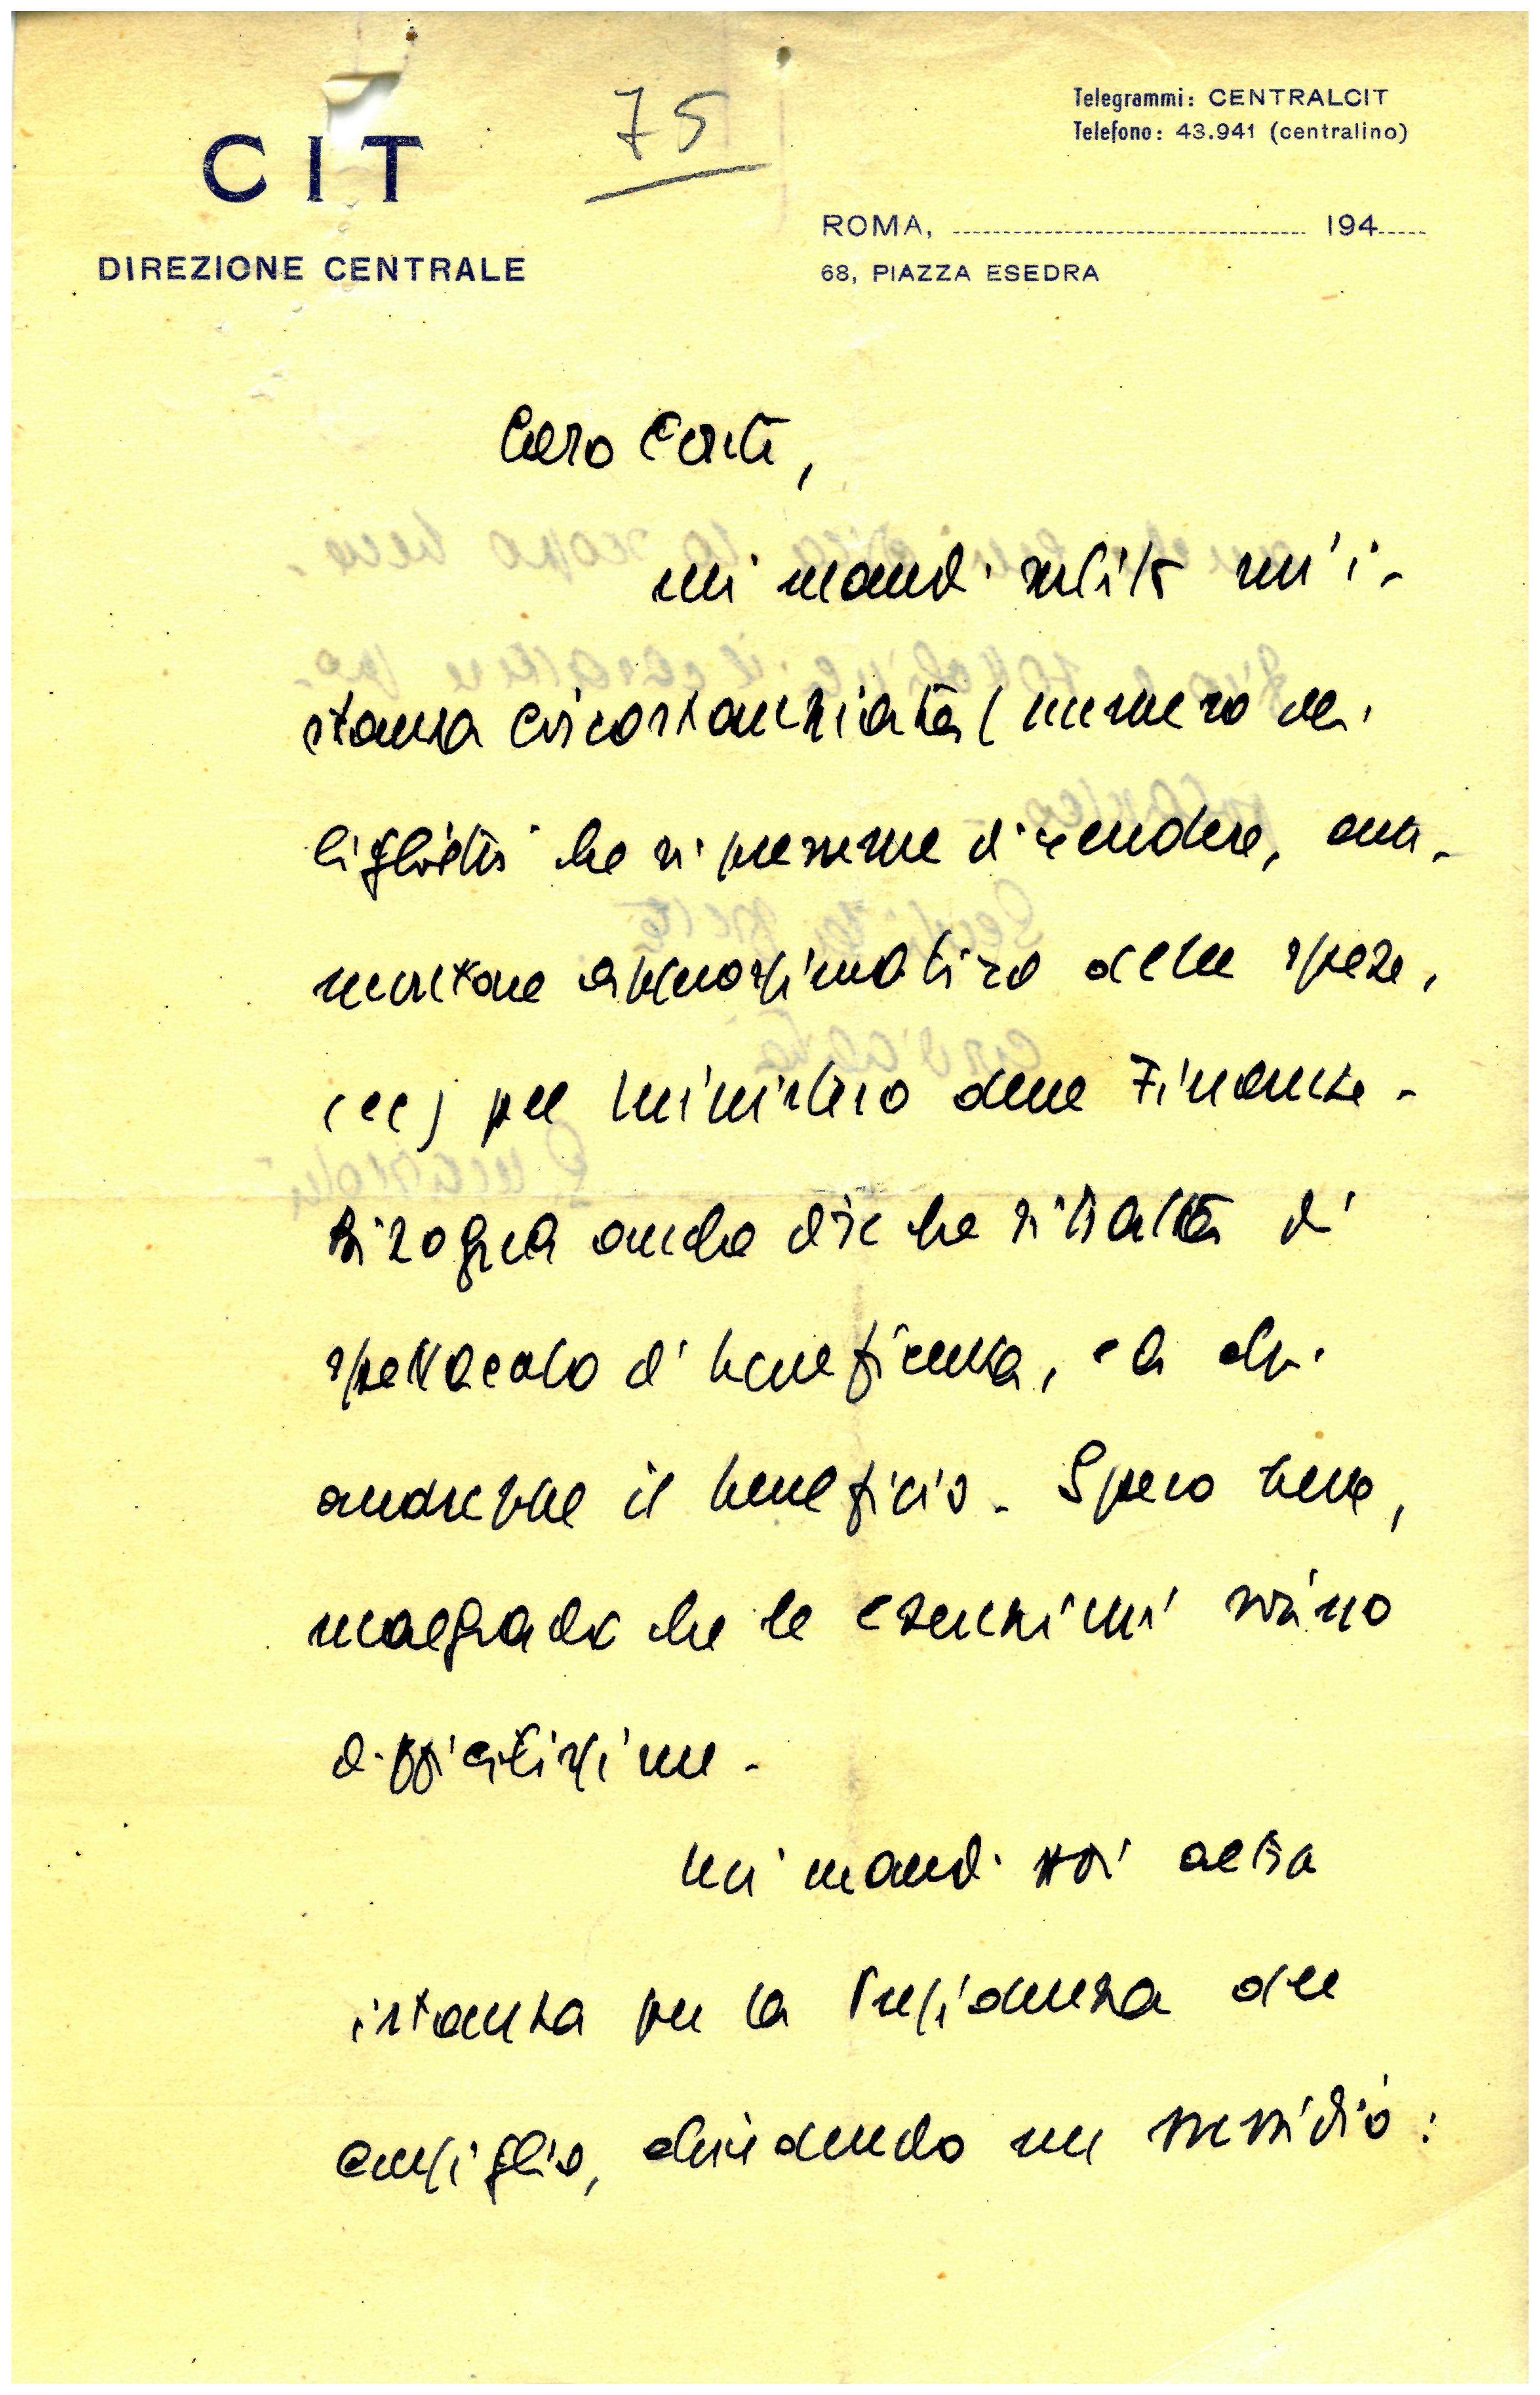 75
CIT
DIREZIONE CENTRALE
Telegrammi: CENTRALCIT
Telefono: 43.941 (centralino)
ROMA, 194
68, PIAZZA ESEDRA
Caro Conti,
mi mandi subito un'i-
stanza circostanziata (numero dei
biglietti che si presume di vendere, am-
montare approssimativo delle spese,
ecc) pel Ministero delle Finanze -
Bisogna anche dire che si tratta di
spettacolo di beneficenza, e a chi
andrebbe il beneficio - Spero bene,
malgrado che le esenzioni siano
difficilissime -
Mi mandi poi altra
istanza per la Presidenza del
Consiglio, chiedendo un sussidio: